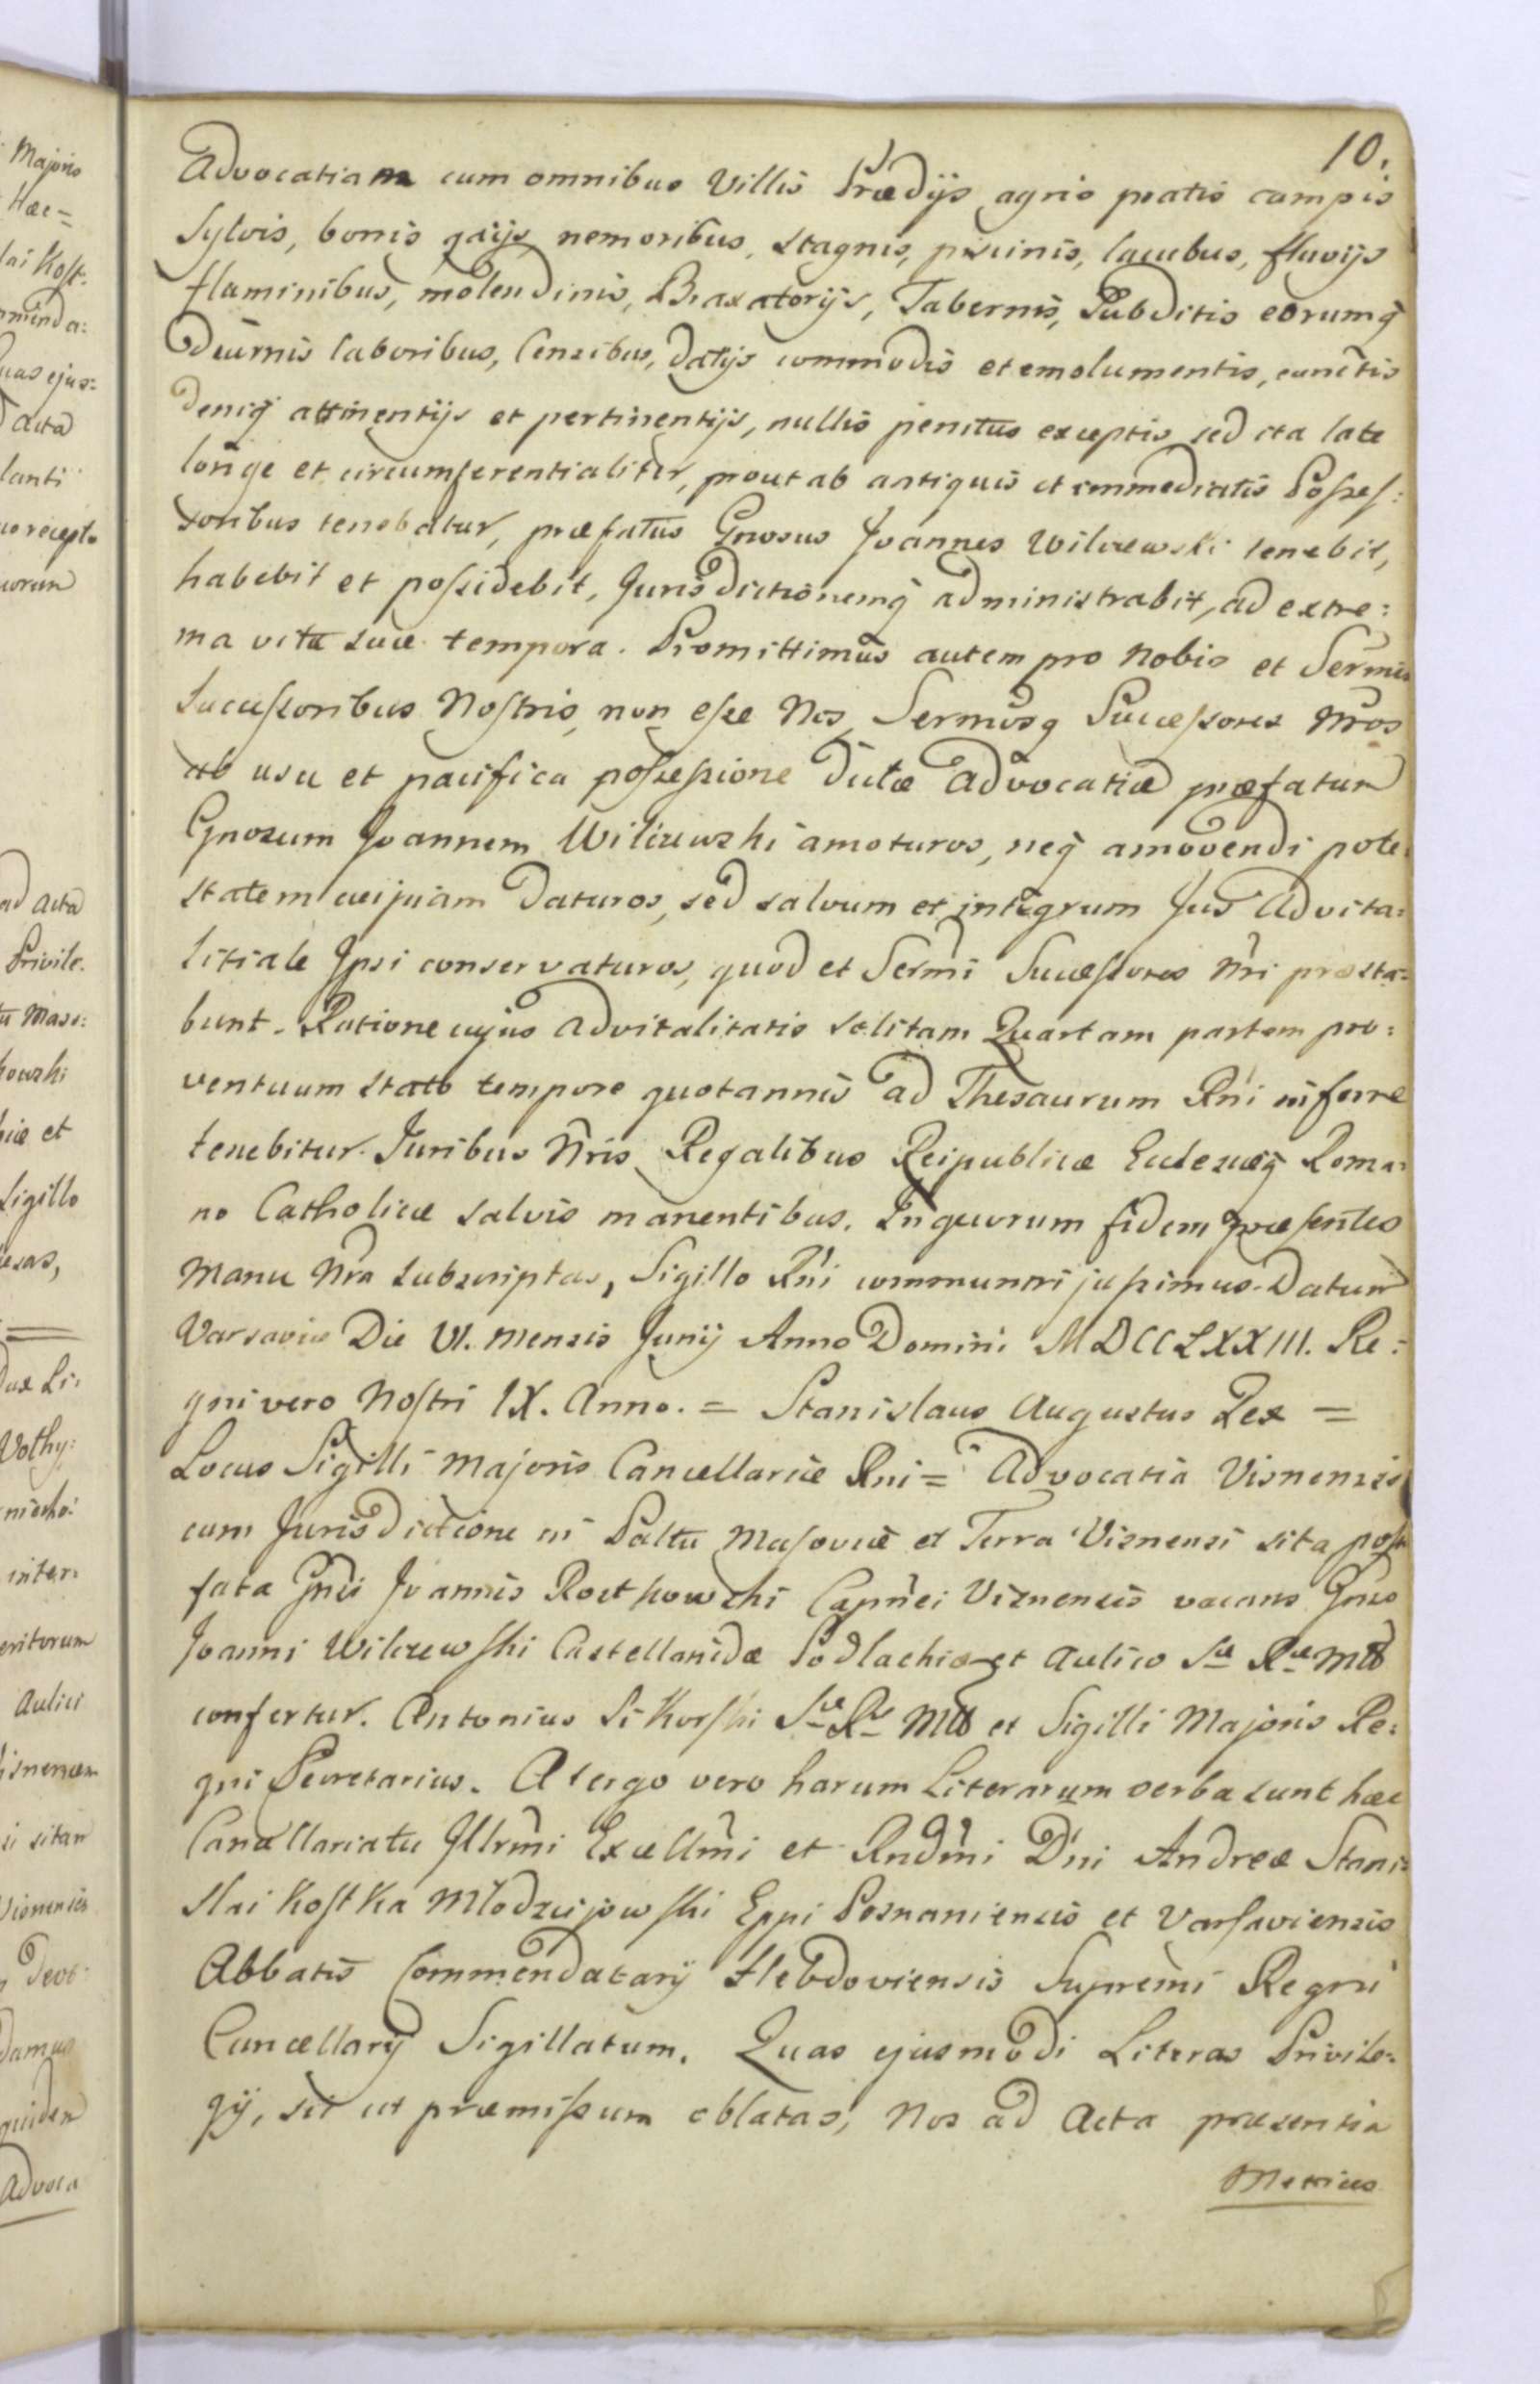 10.
Advocatiam cum omnibus Villis Prædijs agris pratis campis
Sylvis, bonis gaijs nemoribus, stagnis, piscinis, lacubus, fluvijs
fluminibus, molendinis, Braxatorijs, Tabernis, Subditis eorumq̃
Diurnis laboribus, Censibus, Datijs commodis et emolumentis, cunctis
deniq̃ attinentijs et pertinentijs, nullis penitus exceptis sed ita late
longe et circumferentialiter, prout ab antiquis et immediatis Posses:
soribus tenebatur, præfatus Gnosus Joannes Wilczewski tenebit,
habebit et possidebit, Jurisdictionemq̃ administrabit, ad extre:
ma vitæ suæ tempora. Promittimus autem pro Nobis et Sermis
Successoribus Nostris, non esse Nos, Sermosq Successores Nros
ab usu et pacifica possessione dictæ Advocatiæ præfatum
Gnosum Joannem Wilczewski amoturos, neq̃ amovendi pote:
statem cuipiam Daturos, sed salvum et integrum Jus Advita:
litiale Ipsi conservaturos, quod et Sermi Successores Nri præsta:
bunt. Ratione cujus advitalitatis solitam Quartam partem pro:
ventuum stato tempore quotannis ad Thesaurum Rni inferre
tenebitur. Juribus Nris Regalibus Reipublicæ Ecclesiæq̃ Roma:
no Catholicæ salvis manentibus. In quorum fidem præsentes
manu Nra subscriptas, Sigillo Rni communiri jussimus. Datum
Varsaviæ Die VI. mensis Junij Anno Domini MDCCLXXIII. Re:
gni vero Nostri IX. Anno. = Stanislaus Augustus Rex =
Locus Sigilli Majoris Cancellariæ Rni = Advocatia Visnensis
cum Jurisdictione in Palttu Masoviæ et Terra Visnensi sita post
fata Gnsi Joannis Rostkowski Capnei Viznensis vacans Gnso
Joanni Wilczewski Castellanidæ Podlachiæ et Aulico Sæ Ræ Mtt
confertur. Antonius Sikorski Sæ Ræ Mtt et Sigilli Majoris Re:
gni Secretarius. A tergo vero harum Literarum verba sunt hæc
Cancellariatu Illrmi Excellmi et Rndmi Dni Andreæ Stani:
slai Kostka Młodziejowski Eppi Posnaniensis et Varsaviensis
Abbatis Commendatarij Hebdoviensis Supremi Regni
Cancellarij Sigillatum. Quas ejusmodi Literas Privile:
gij, sic ut præmissum oblatas, Nos ad Acta præsentia
Metrices